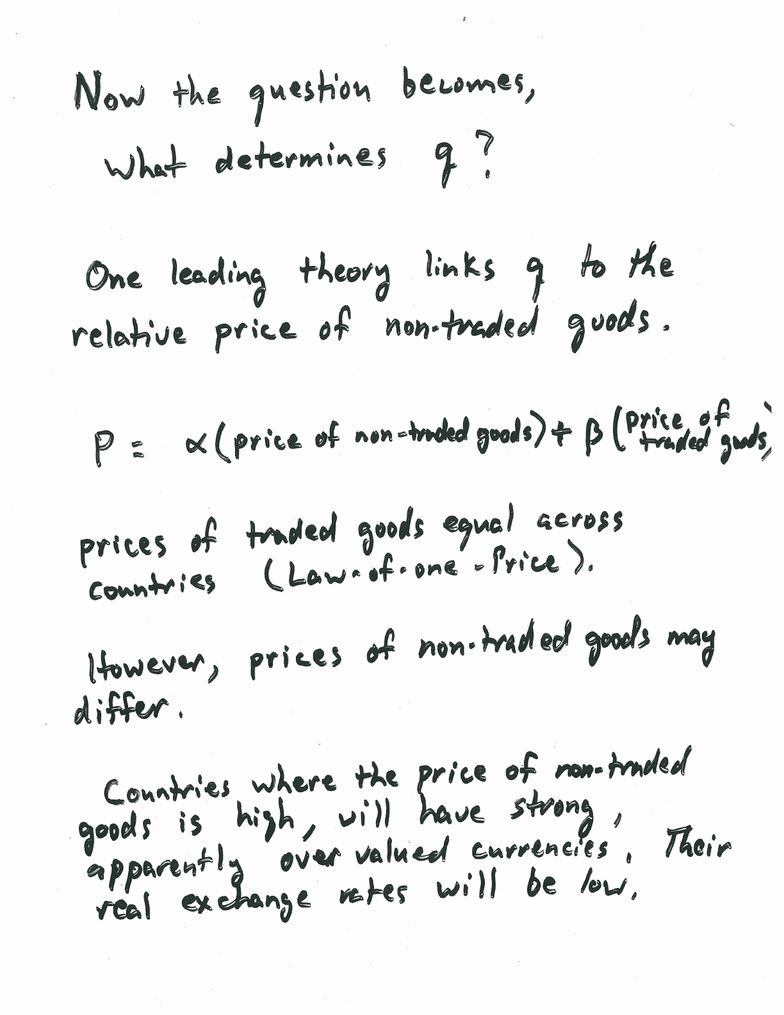 Now the question becomes,
What determines q?
One leading theory links q to the
relative price of non-traded goods.
P = α(price of non-traded goods) + β(price of traded goods)
prices of traded goods equal across
countries (Law-of-one-Price).
However, prices of non-traded goods may
differ.
Countries where the price of non-traded
goods is high, will have strong,
apparently over valued currencies. Their
real exchange rates will be low.